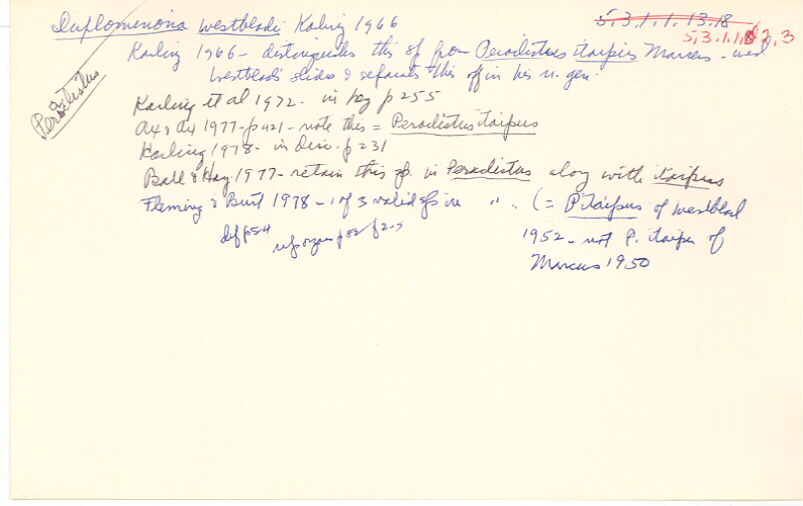 Duplominona westbladi Karling 1966
5.3.1.1.13.18
5.3.1.1.8 2.3
Karling 1966 - distinguishes this sp from Peraclistus itaipus Marcus - used
Westblad's slides & separates this sp in his n. gen.
Peraclistus
Karling et al 1972. in key p 255
Ax & Ax 1977 - p 421 - note this = Peraclistus itaipus
Karling 1978 - in disc. p 231
Ball & Hay 1977 - retain this sp. in Peraclistus along with itaipus
Fleming & Burt 1978 - 1 of 3 valid sps in " . (= P. itaipus of westblad
1952 - not P. itaipus of
Marcus 1950
def p54